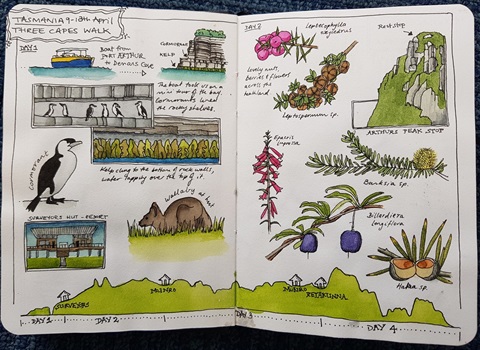 TASMANIA 9-13th April
THREE CAPES WALK
DAY 1
Boat from
PORT ARTHUR
to Denmans Cove
CORMORANTS
KELP
The boat took us on a
mini tour of the bay.
Cormorants lined
the rocky shelves.
Kelp clung to the bottom of rock walls,
water lapping over the top of it.
CORMORANT
Wallaby at hut
SURVEYORS HUT
DAY 2
Leptecophylla
Lovely nuts,
berries & flowers
across the
Leptospermum sp.
Rest stop
ARTHURS PEAK STOP
Epacris
impressa
Banksia sp.
Billardiera
longiflora
Hakea sp.
SURVEYORS
MUNRO
MUNRO
RETAKUNNA
DAY 1
DAY 2
DAY 3
DAY 4